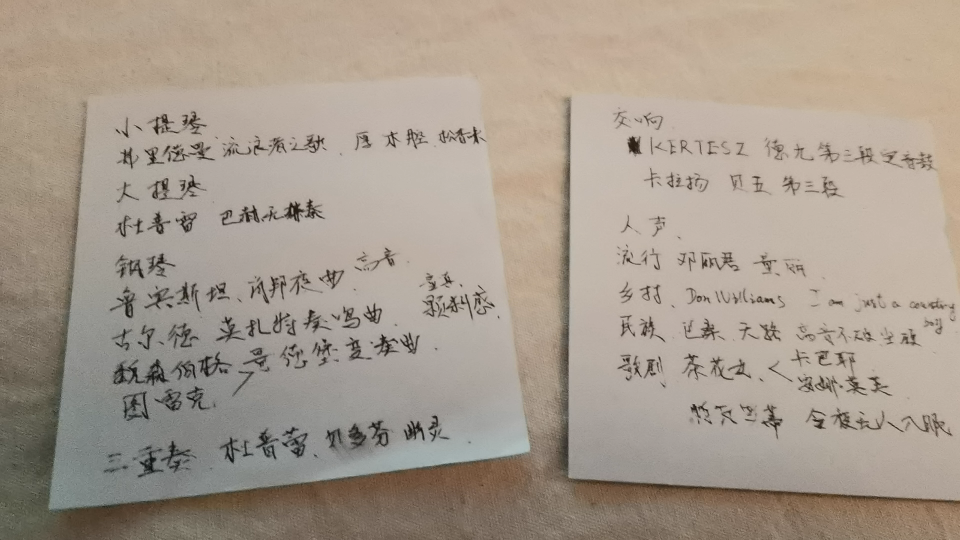 小提琴
弗里德曼 流浪者之歌 厚 木腔 松香味
大提琴
杜普雷 巴赫无伴奏
钢琴
鲁宾斯坦、肖邦夜曲 高音
古尔德 莫扎特奏鸣曲 颗粒感
伯格 哥德堡变奏曲
图雷克
三重奏 杜普蕾、贝多芬 幽灵
交响
KERTESZ 德九 第三段定音鼓
卡拉扬 贝五 第三段
人声、
流行 邓丽君 童丽
乡村、Don Williams I am just a country boy
民族 巴桑 天路 高音不破
歌剧 茶花女、卡巴耶
安娜·莫芙
今夜无人入眠